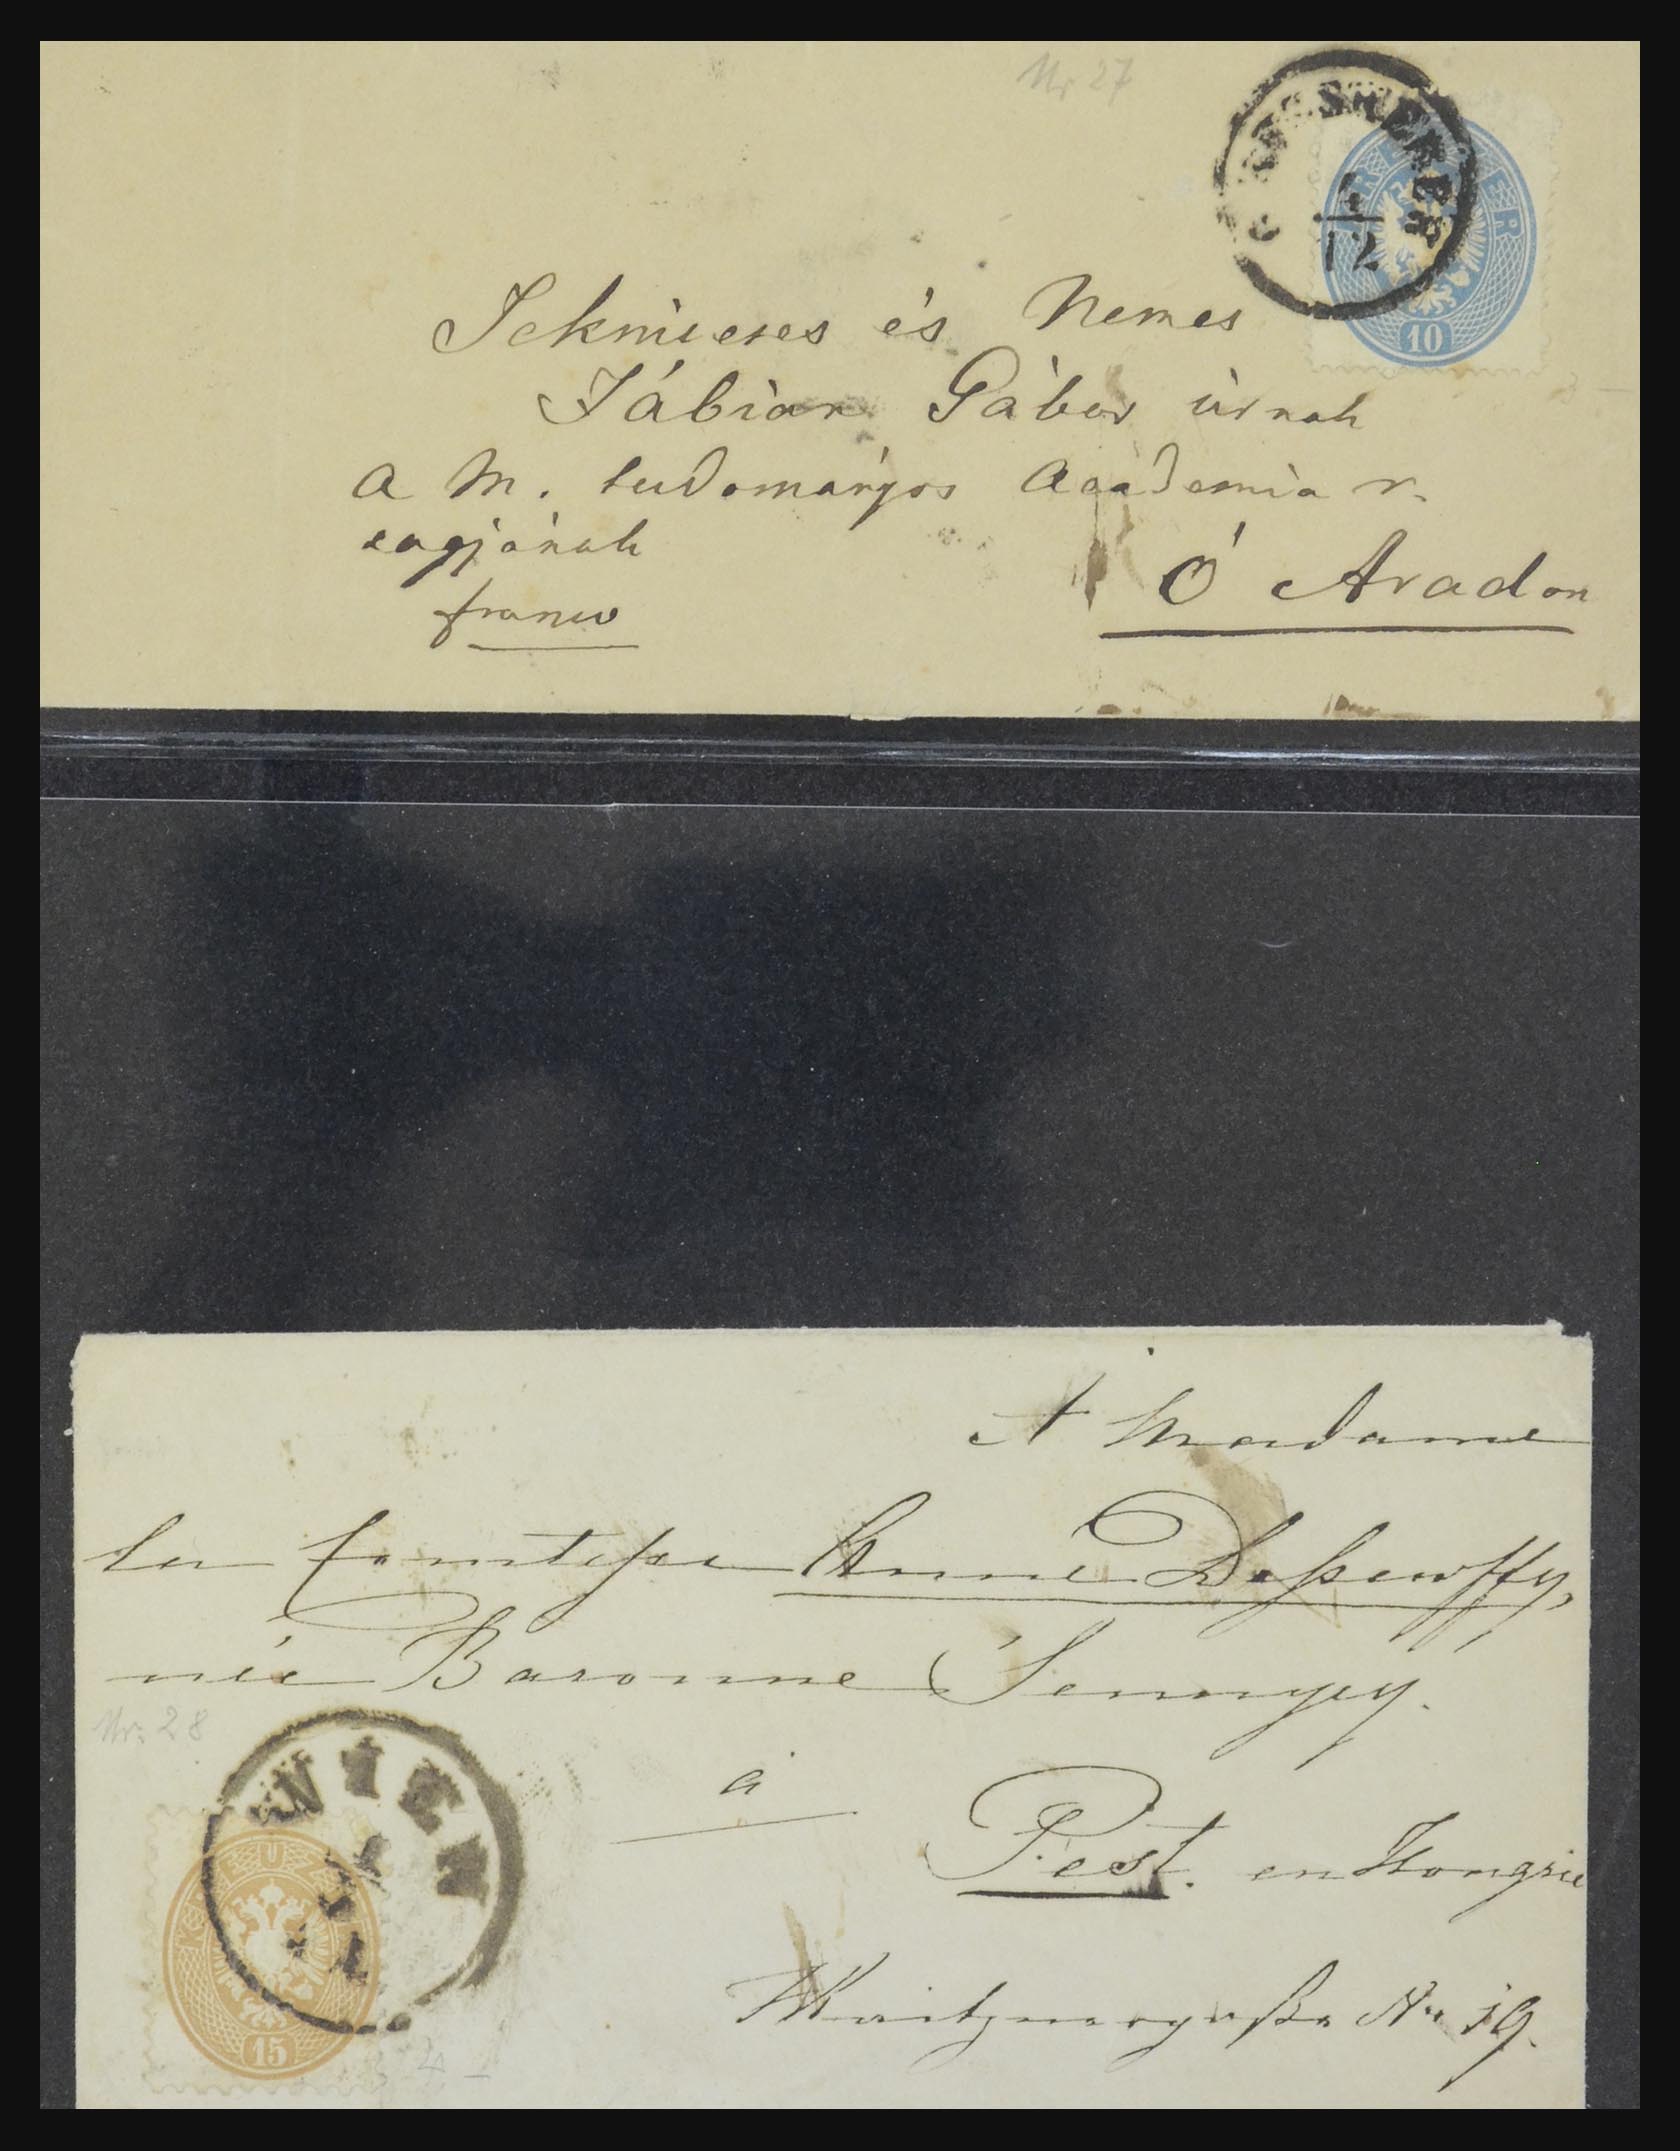 Nr 27
KREUZER
10
12
Tekintetes és Nemes
Fábián Gábor úrnak
a M. tudományos Academia r.
tagjának
franco
Ó Aradon
A Madame
la Comtesse Anne Dessewffy,
née Baronne Sennyey.
Nr. 28
WIEN
à
Pest. en Hongrie
KREUZER
15
Waitznergasse No 19.